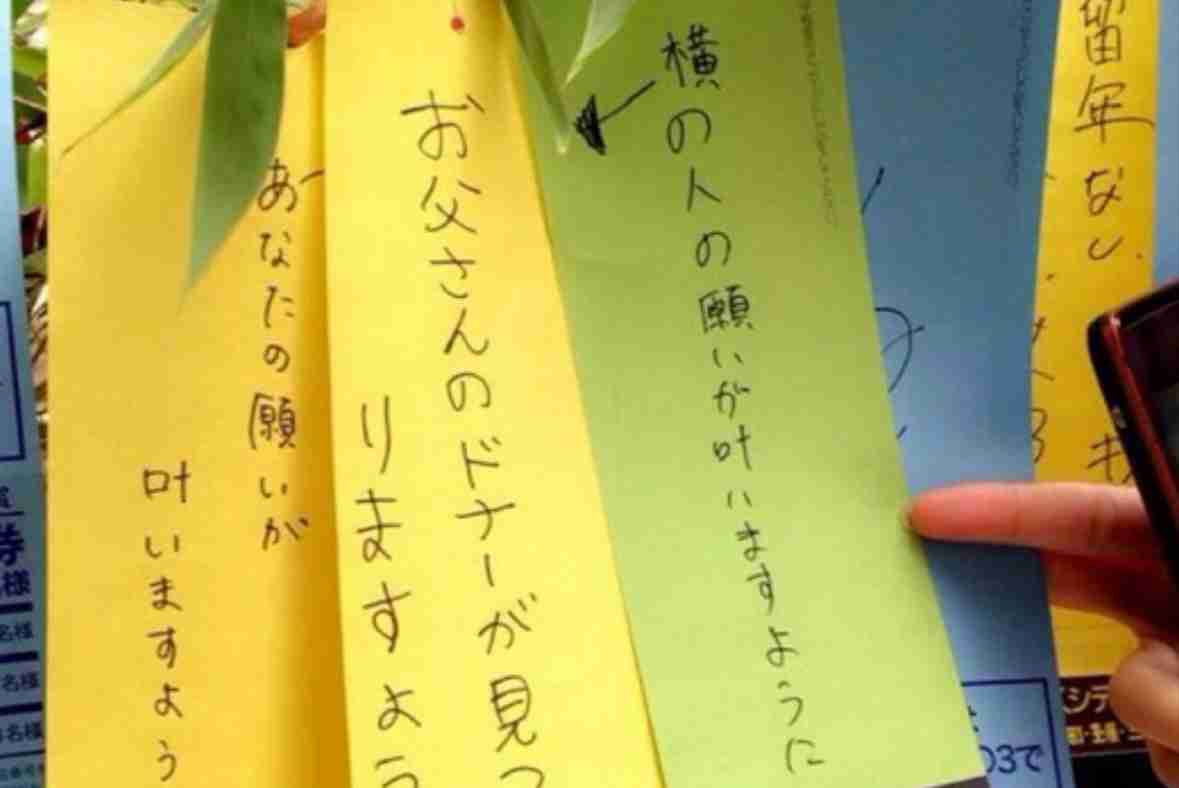 留年なし
横の人の願いが叶いますように
お父さんのドナーが見つ
りますよう
あなたの願いが
叶いますよう
券
名様
名様
名様
名様
03で